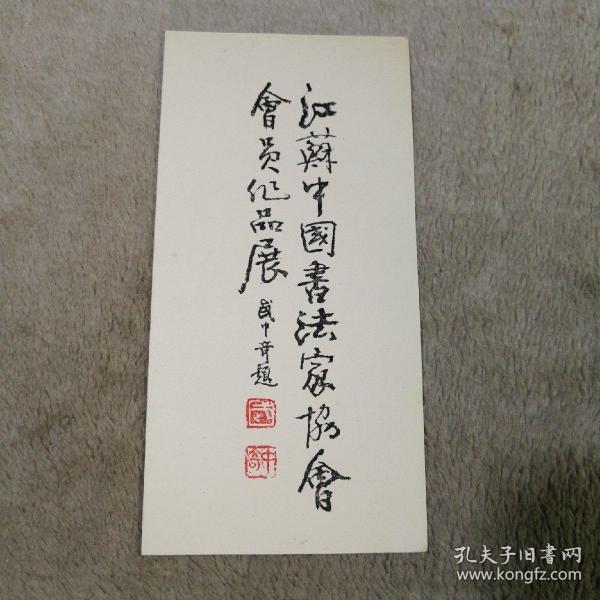 江蘇中國書法家協會
會員作品展
武中奇題
孔夫子旧书网
www.kongfz.com